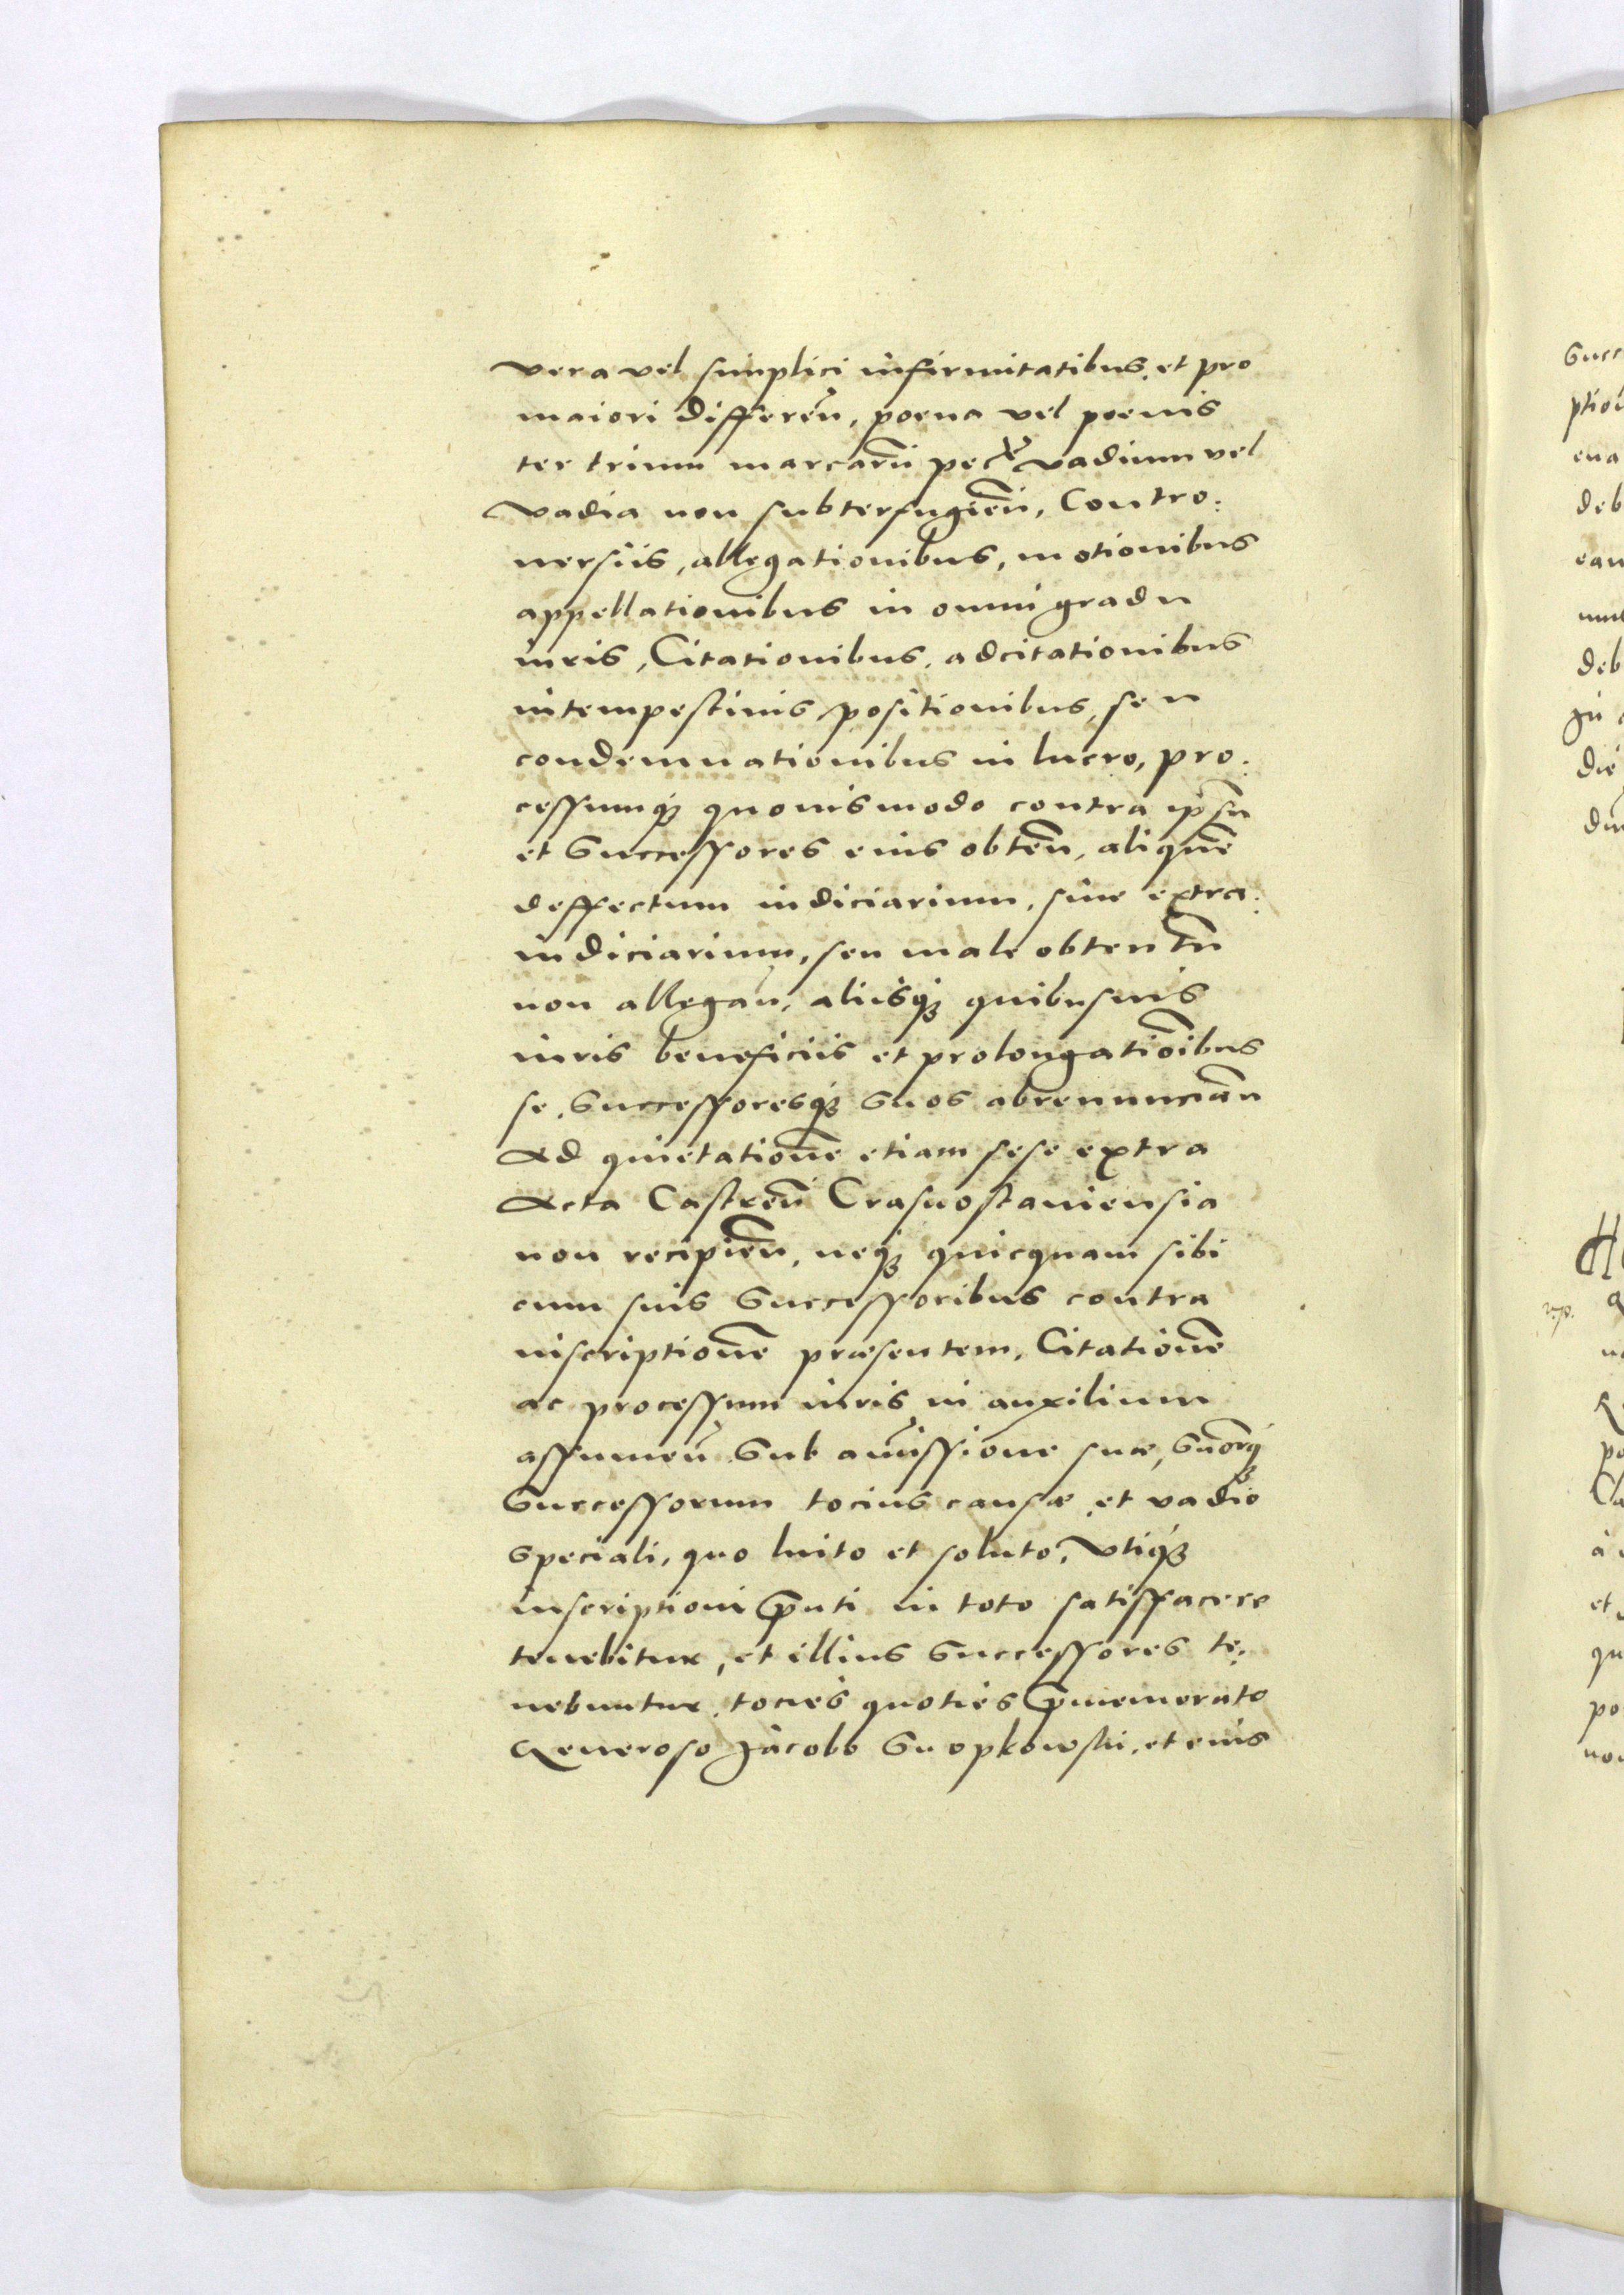 vera vel simplici infirmitatibus, et pro
maiori differen̄, poena vel poenis
ter trium marcarū pec̄ vadium vel
vadia non subterfugien̄, Contro:
uersiis, allegationibus, motionibus
appellationibus in omni gradu
iuris, Citationibus, adcitationibus
intempestiuis, positionibus, seu
condemnationibus in lucro, pro:
cessumq3 quouismodo contra ipsū
et Successores eius obten̄, aliquē
deffectum iudiciarium, siue extra:
iudiciarium, seu male obtentū
non allegan̄, aliisq3 quibusuis
iuris beneficiis et prolongatiōibus
se, Successoresq3 Suos abrenuncian̄
Ad quietationē etiam sese extra
Acta Castren̄ Crasnostauiensia
non recipien̄, neq3 quicquam sibi
cum suis Successoribus contra
inscriptionē præsentem, Citationē
ac processum iuris in auxilium
assumen̄ Sub amissione suæ, Suorq3
Successorum tocius causæ, et vadio
Speciali, quo luito et soluto, Vtiq3
inscriptioni p̄nti in toto satisfacere
tenebitur, et illius Successores te:
nebuntur, tocies quoties p̄memorato
Generoso Jacobo Snopkowski, et eius